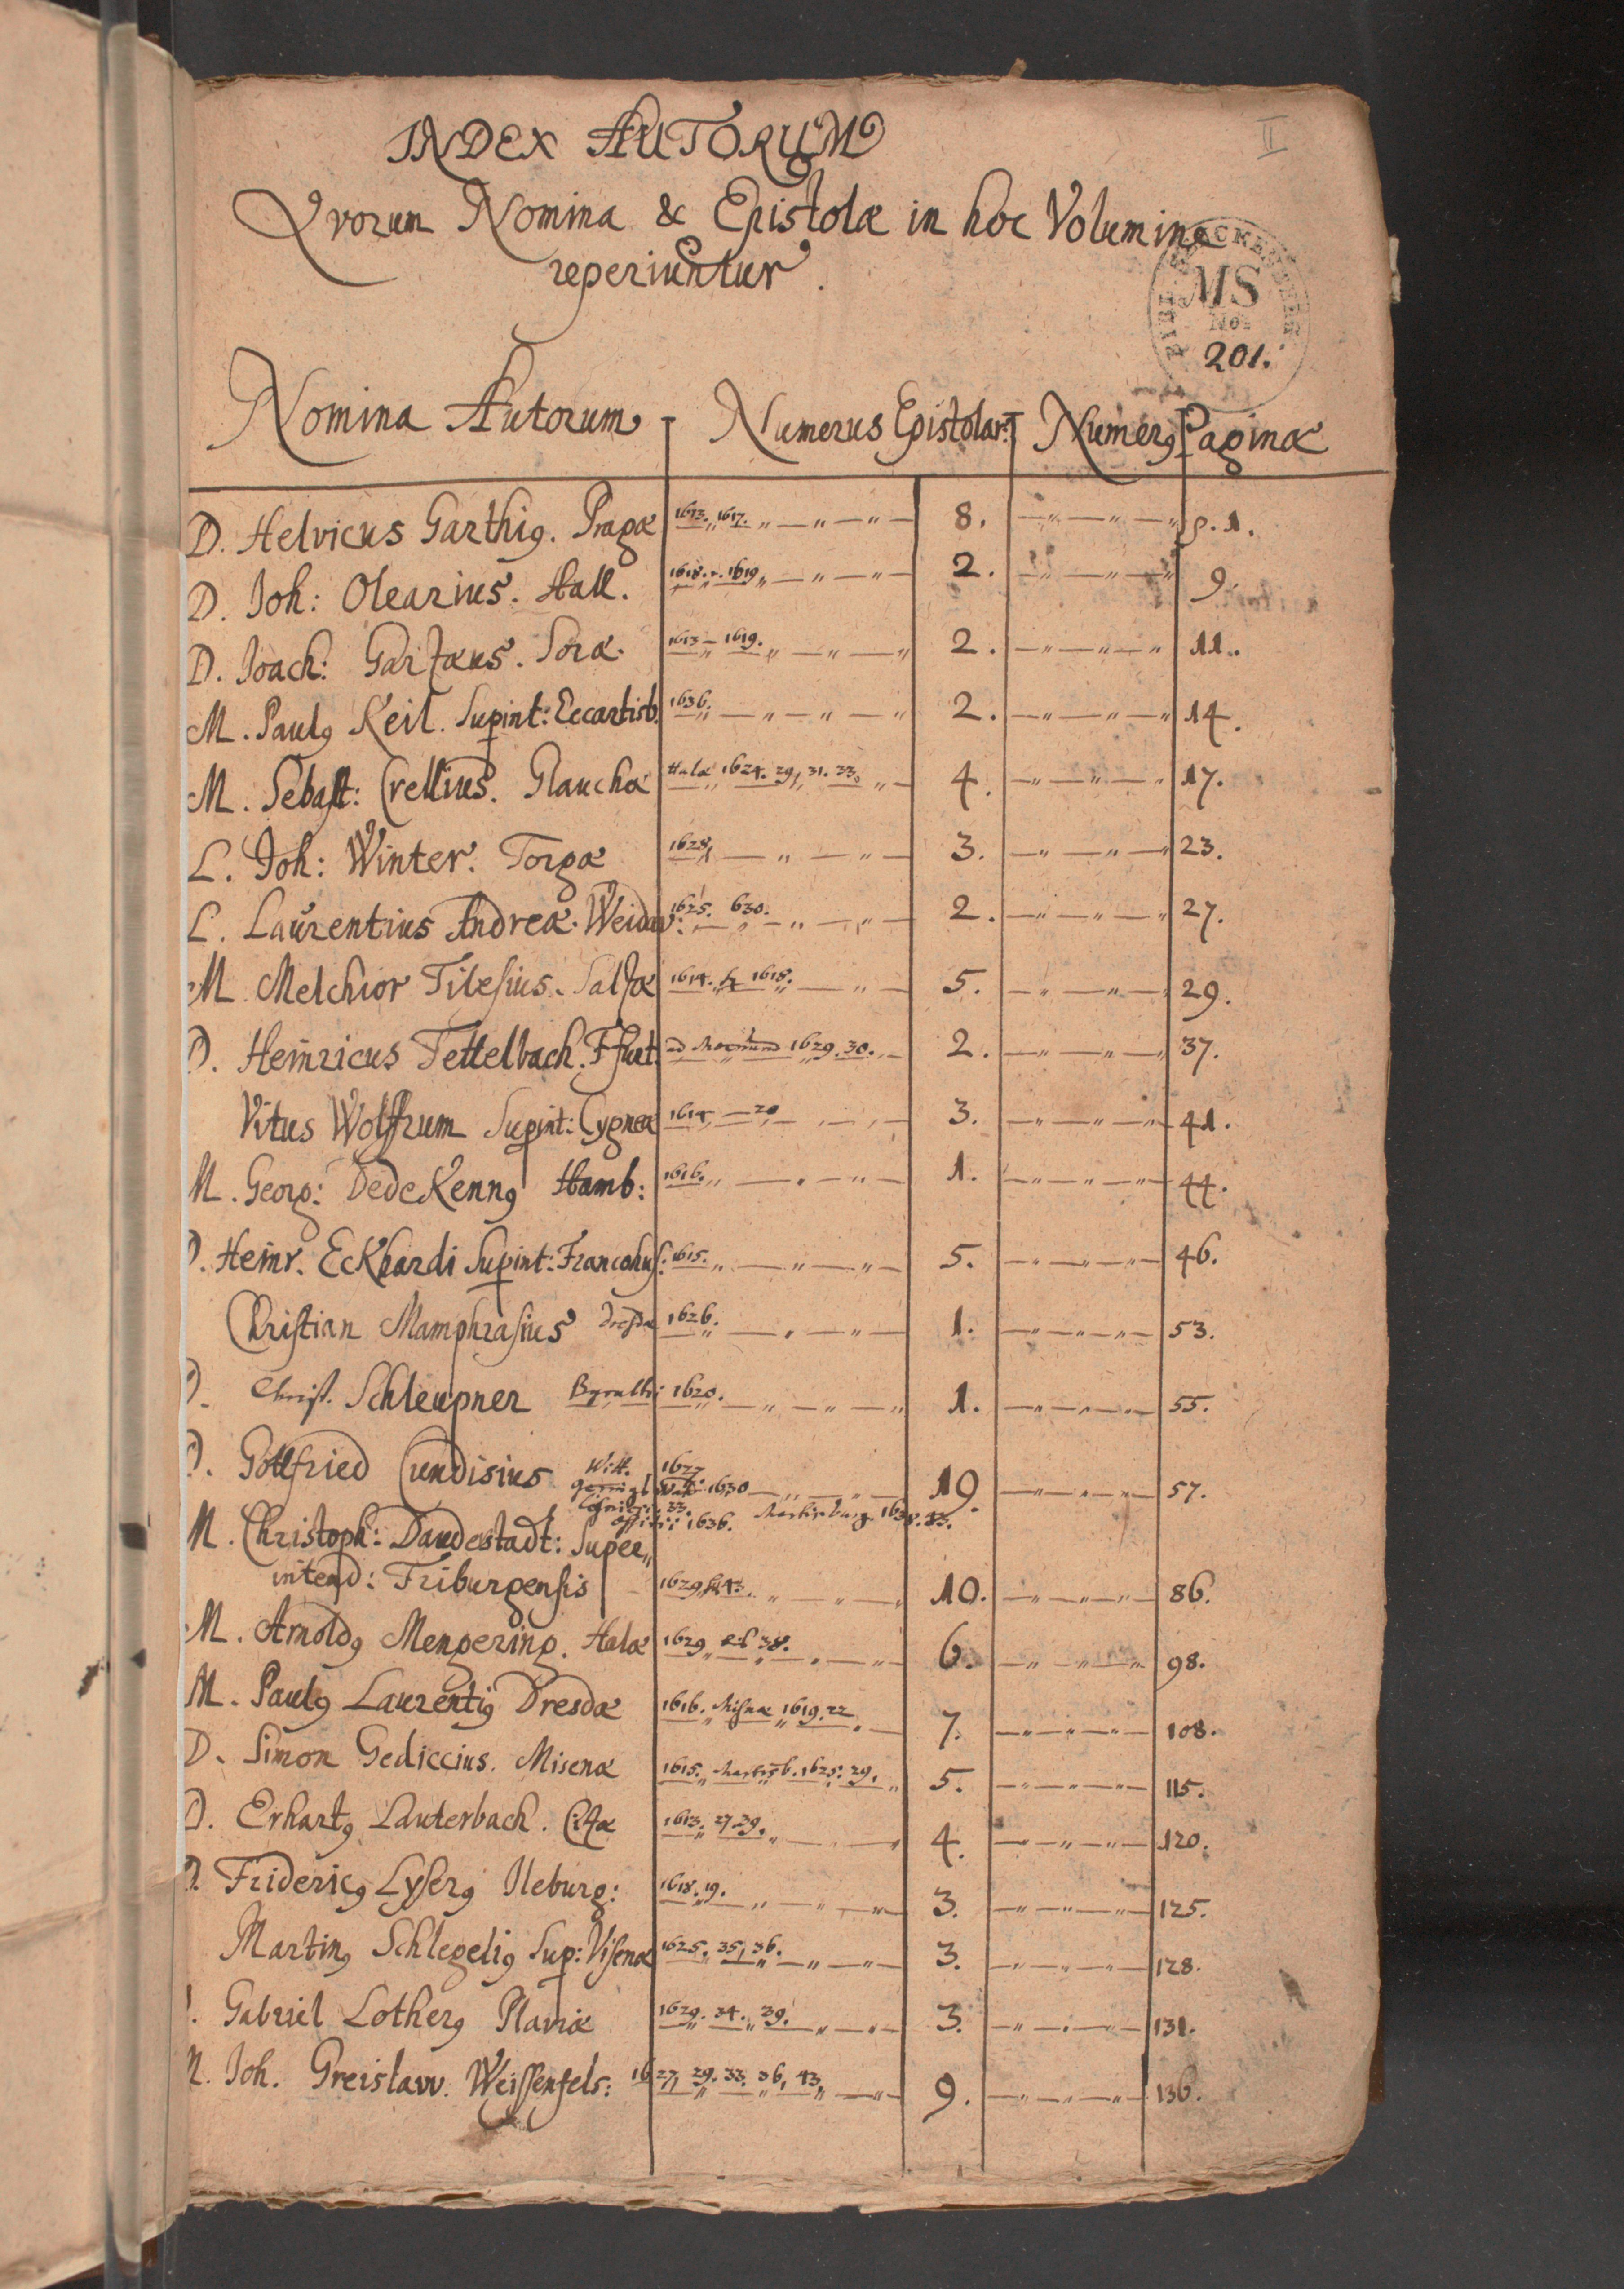 INDEX AUTORUM
II
Qvorum Nomina & Epistolæ in hoc Volumine
reperiuntur.
MS
No:
201.
Nomina Autorum Numerus Epistolar: Numerꝯ Paginæ
D. Helvicus Garthiꝯ. Pragæ 1613. 1617. 8. p. 1.
D. Joh: Olearius. Hall. 1618. 1619 2. 9.
D. Joach: Garzæus. Soræ. 1613 – 1619. 2. 11.
M. Paulꝯ Keil. Supint: Eccartisb. 1636. 2. 14.
M. Sebast: Crellius. Glauchæ Halæ 1624. 29, 31. 33. 4. 17.
L. Joh: Winter. Torgæ 1628 3. 23.
L. Laurentius Andreæ. Weida: 1625. 630. 2. 27.
M. Melchior Tilesius. Salzæ 1614. 1618. 5. 29.
D. Heinricus Tettelbach. Ffurt. ad 1629. 30. 2. 37.
Vitus Wolfrum Supint: Cygneæ 1614 – 20 3. 41.
M. Georg: Dedekennꝯ Hamb: 1616. 1. 44.
D. Heinr. Eckhardi Supint: Francohus: 1615. 5. 46.
Christian Mamphrasius 1626. 1. 53.
D. Christ. Schleupner Byruthi 1620. 1. 55.
D. Gottfried Cundisius Witt. 1627 1630 19. 57.
33.
1636. Martisburg. 1638. 43.
M. Christoph: Dandestadt: Super„
intend: Friburgensis 1629 43. 10. 86.
M. Arnoldꝯ Mengering. Halæ 1629 38. 6. 98.
M. Paulꝯ Laurentiꝯ Dresdæ 1616. Misnæ 1619. 22 7. 108.
D. Simon Gediccius. Misenæ 1615. Martisb. 1625. 29. 5. 115.
D. Erhartꝯ Lauterbach. Cizæ 1613. 27. 29. 4. 120.
D. Fridericꝯ Lyserꝯ Ileburg: 1618. 19. 3. 125.
Martinꝯ Schlegeliꝯ Sup: Misenæ 1625. 35, 36. 3. 128.
Gabriel Lotherꝯ Plaviæ 1629. 34. 39. 3. 131.
M. Joh. Greislaw. Weissenfels: 1627, 29. 33. 36, 43, 9. 136.